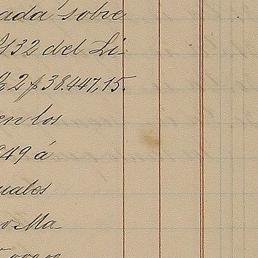 ada sobre
132 del Li
2 $ 38.447,15.
en los
949 á
uales
o Ma